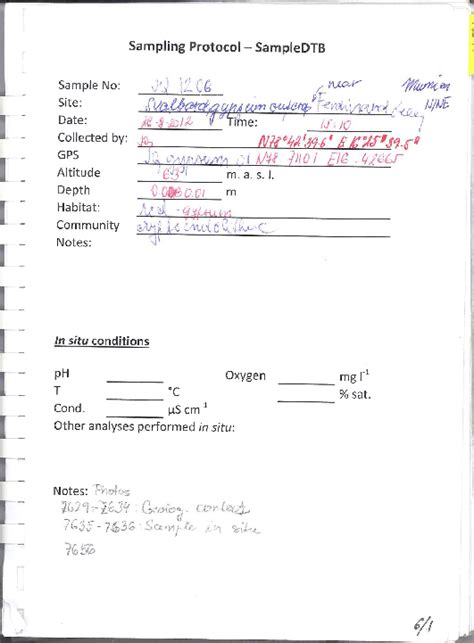 Sampling Protocol – SampleDTB
near
Sample No: 1206
Site: Svalbard gypsum outcrop Ferdinand
Date: -8-2012 Time: 15:10
Collected by: N78°42'39.6" E16°25'39.5"
GPS gypsum 01 N78 71101 E16.42665
Altitude 631 m. a. s. l.
Depth 0.01 m
Habitat: gypsum
Community
Notes:
In situ conditions
pH Oxygen mg l-1
T °C % sat.
Cond. µS cm-1
Other analyses performed in situ:
Notes: Photos
7629-7634: Geolog. contact
7635-7636: Sample in situ
7656
6/1